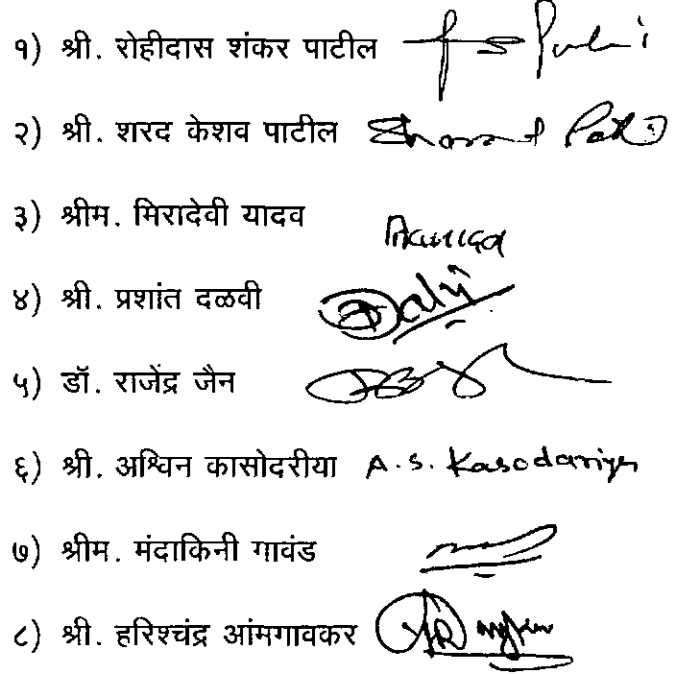 १) श्री. रोहीदास शंकर पाटील
२) श्री. शरद केशव पाटील Sharad Patil
३) श्रीम. मिरादेवी यादव
४) श्री. प्रशांत दळवी Dalvi
५) डॉ. राजेंद्र जैन
६) श्री. अश्विन कासोदरीया A.S. Kasodariya
७) श्रीम. मंदाकिनी गावंड
८) श्री. हरिश्चंद्र आंमगावकर